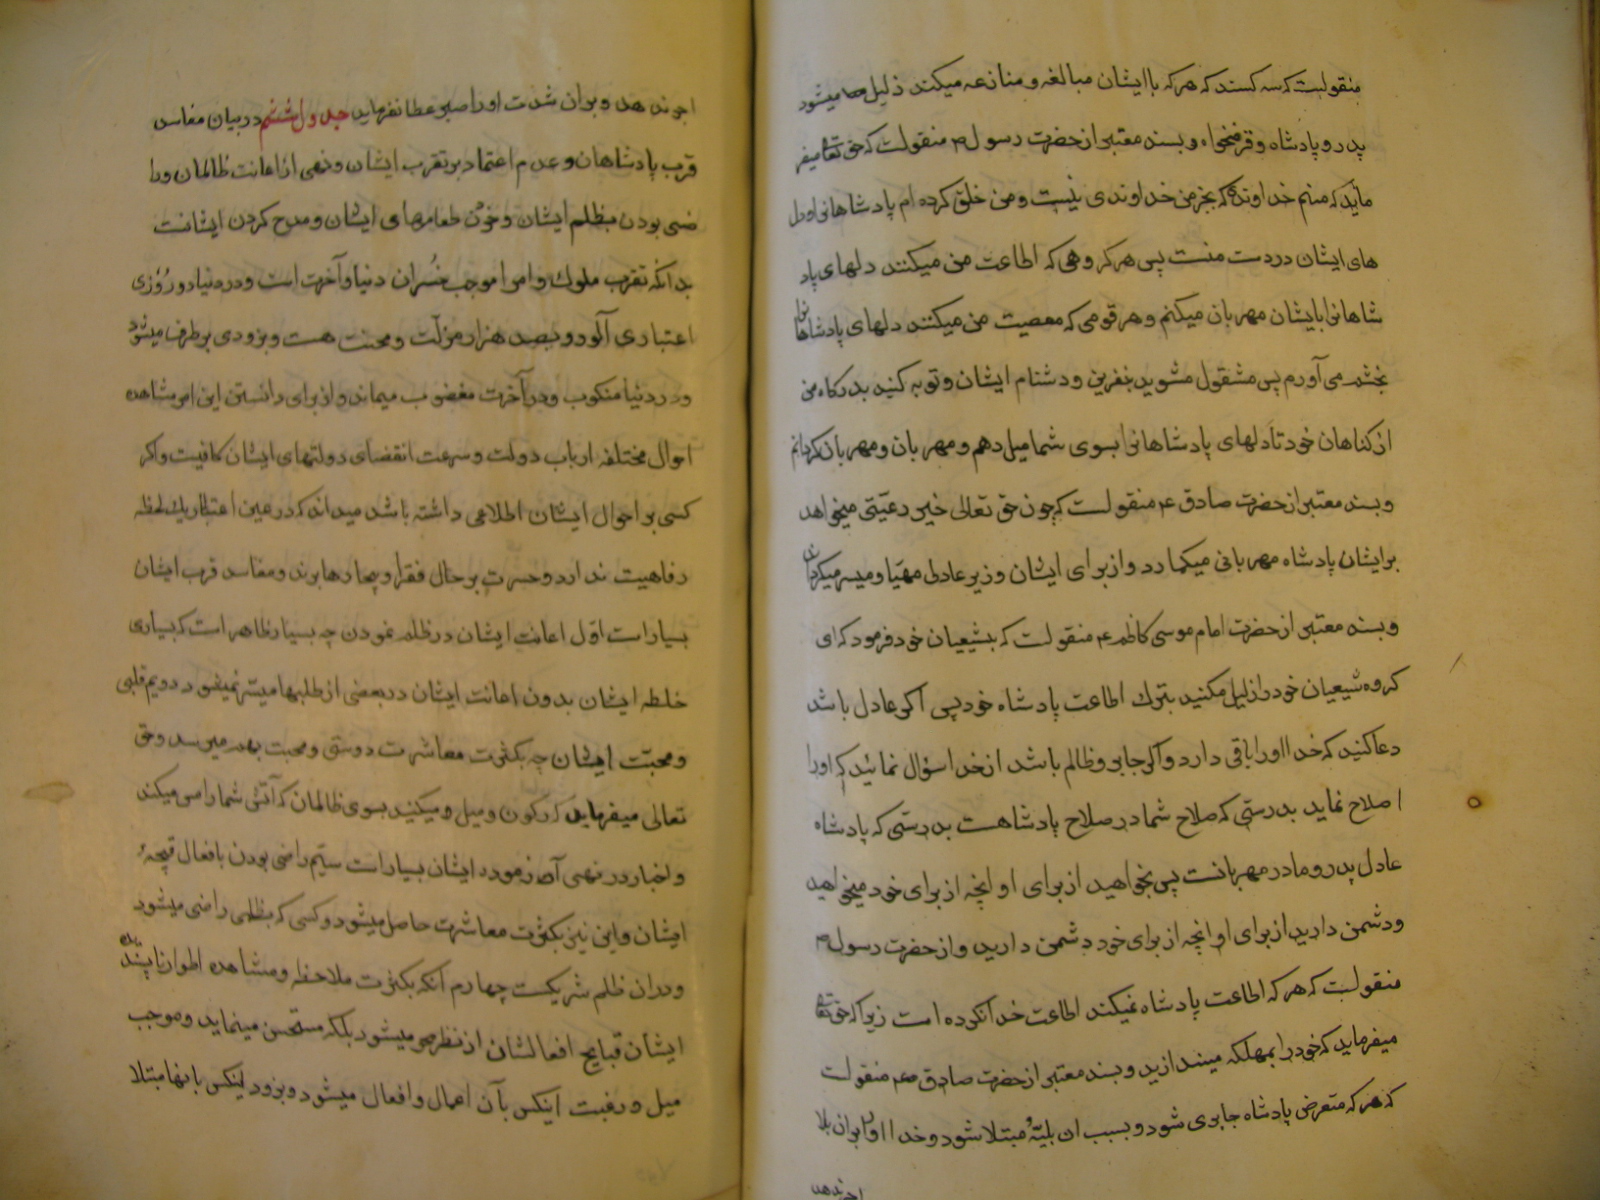 منقولست که سه کسند که هر که با ایشان مبالغه و منازعه میکند ذلیل میشود
پدر و پادشاه و قرضخواه و بسند معتبر از حضرت رسول ص منقولست که حق تعالی میفر
ماید که منم خداوندی که بجز من خداوندی نیست و من خلق کرده ام پادشاهانرا و دل
های ایشان در دست منست پس هر گروهی که اطاعت من میکنند دلهای پاد
شاهانرا بایشان مهربان میکنم و هر قومی که معصیت من میکنند دلهای پادشاهانرا
بخشم می آورم پس مشغول مشوید بنفرین و دشنام ایشان و توبه کنید بدرگاه من
از گناهان خود تا دلهای پادشاهانرا بسوی شما میل دهم و مهربان و مهربان گردانم
و بسند معتبر از حضرت صادق ع منقولست که چون حق تعالی خیر رعیتی میخواهد
بر ایشان پادشاه مهربانی میگمارد و از برای ایشان وزیر عادلی مهیا و میسر میگرداند
و بسند معتبر از حضرت امام موسی کاظم ع منقولست که بشیعیان خود فرمود که ای
گروه شیعیان خود را ذلیل مکنید بترک اطاعت پادشاه خود پس اگر عادل باشد
دعا کنید که خدا او را باقی دارد و اگر جابر و ظالم باشد از خدا سؤال نمائید که او را
اصلاح نماید بدرستی که صلاح شما در صلاح پادشاهست بدرستی که پادشاه
عادل پدر و مادر مهربانست پس بخواهید از برای او آنچه از برای خود میخواهید
و دشمن دارید از برای او آنچه از برای خود دشمن دارید و از حضرت رسول ص
منقولست که هر که اطاعت پادشاه نمیکند اطاعت خدا نکرده است زیرا که حق تعالی
میفرماید که خود را بمهلکه میندازید و بسند معتبر از حضرت صادق ع منقولست
که هر که متعرض پادشاه جابری شود و بسبب آن بلیّه مبتلا شود و خدا او را بر آن بلا
اجر ندهد
اجر ندهد و بر آن شدت او را صبر عطا نفرماید جدول ششم در بیان مفاسد
قرب پادشاهان و عدم اعتماد بر تقرب ایشان و نهی از اعانت ظالمان و را
ضی بودن بظلم ایشان و خوردن طعامهای ایشان و مدح کردن ایشانست
بدانکه تقرب ملوک و امرا موجب خسران دنیا و آخرت است و در دنیا دو روزی
اعتباری آلوده بصد هزار مزلّت و محنت هست و بزودی برطرف میشود
و در دنیا منکوب و در آخرت مغضوب میماند و از برای دانستن این امر مشاهده
احوال مختلفه ارباب دولت و سرعت انقضای دولتهای ایشان کافیست و اگر
کسی بر احوال ایشان اطلاعی داشته باشد میداند که در عین اعتبار یک لحظه
رفاهیت ندارد و حسرت بر حال فقرا و بیچارها برند و مفاسد قرب ایشان
بسیار است اوّل اعانت ایشان در ظلم نمودن چه بسیار ظاهر است که بسیاری
خلطه ایشان بدون اعانت ایشان در بعضی از ظلمها میسّر نمیشود دویم قلبی
و محبّت ایشان چه بکثرت معاشرت دوستی و محبت بهم میرسد و حق
تعالی میفرماید که رکون و میل و میکنید بسوی ظالمان که آتش شما را مس میکند
و اخبار در نهی آن زمورد ایشان بسیار است سیّم راضی بودن بافعال قبیحهٔ
ایشان و این نیز بکثرت معاشرت حاصل میشود و کسی که بظلمی راضی میشود
و در آن ظلم شریکست چهارم آنکه بکثرت ملاحظه و مشاهده اطوار ناپسندیده
ایشان قبایح افعالشان از نظر محو میشود بلکه مستحسن مینماید و موجب
میل و رغبت اینکس بآن اعمال و افعال میشود و بزودی اینکس بانها مبتلا